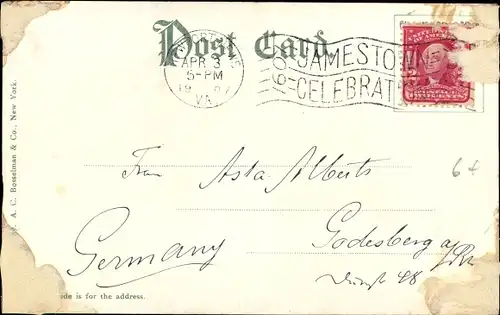 Post Card.
APR 3
5-PM
VA.
JAMESTOWN
CELEBRAT
6
Frau Asta Alberts
Godesberg a/Rh
Germany
48
A. C. Bosselman & Co., New York.
de is for the address.